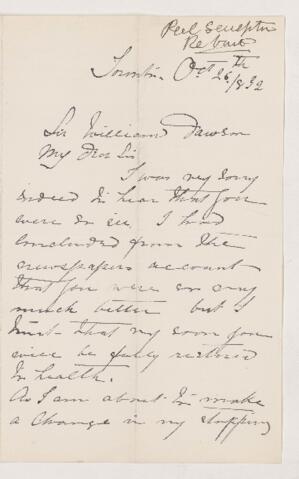 Peel Sculptor
Re bust
Toronto Oct 26th/892
Sir William Dawson
My Dear Sir
I was very sorry
indeed to hear that you
were so ill, I had
concluded from the
newspapers account
that you were so very
much better but I
trust that very soon you
will be fully restored
to health.
As I am about to make
a change in my shipping